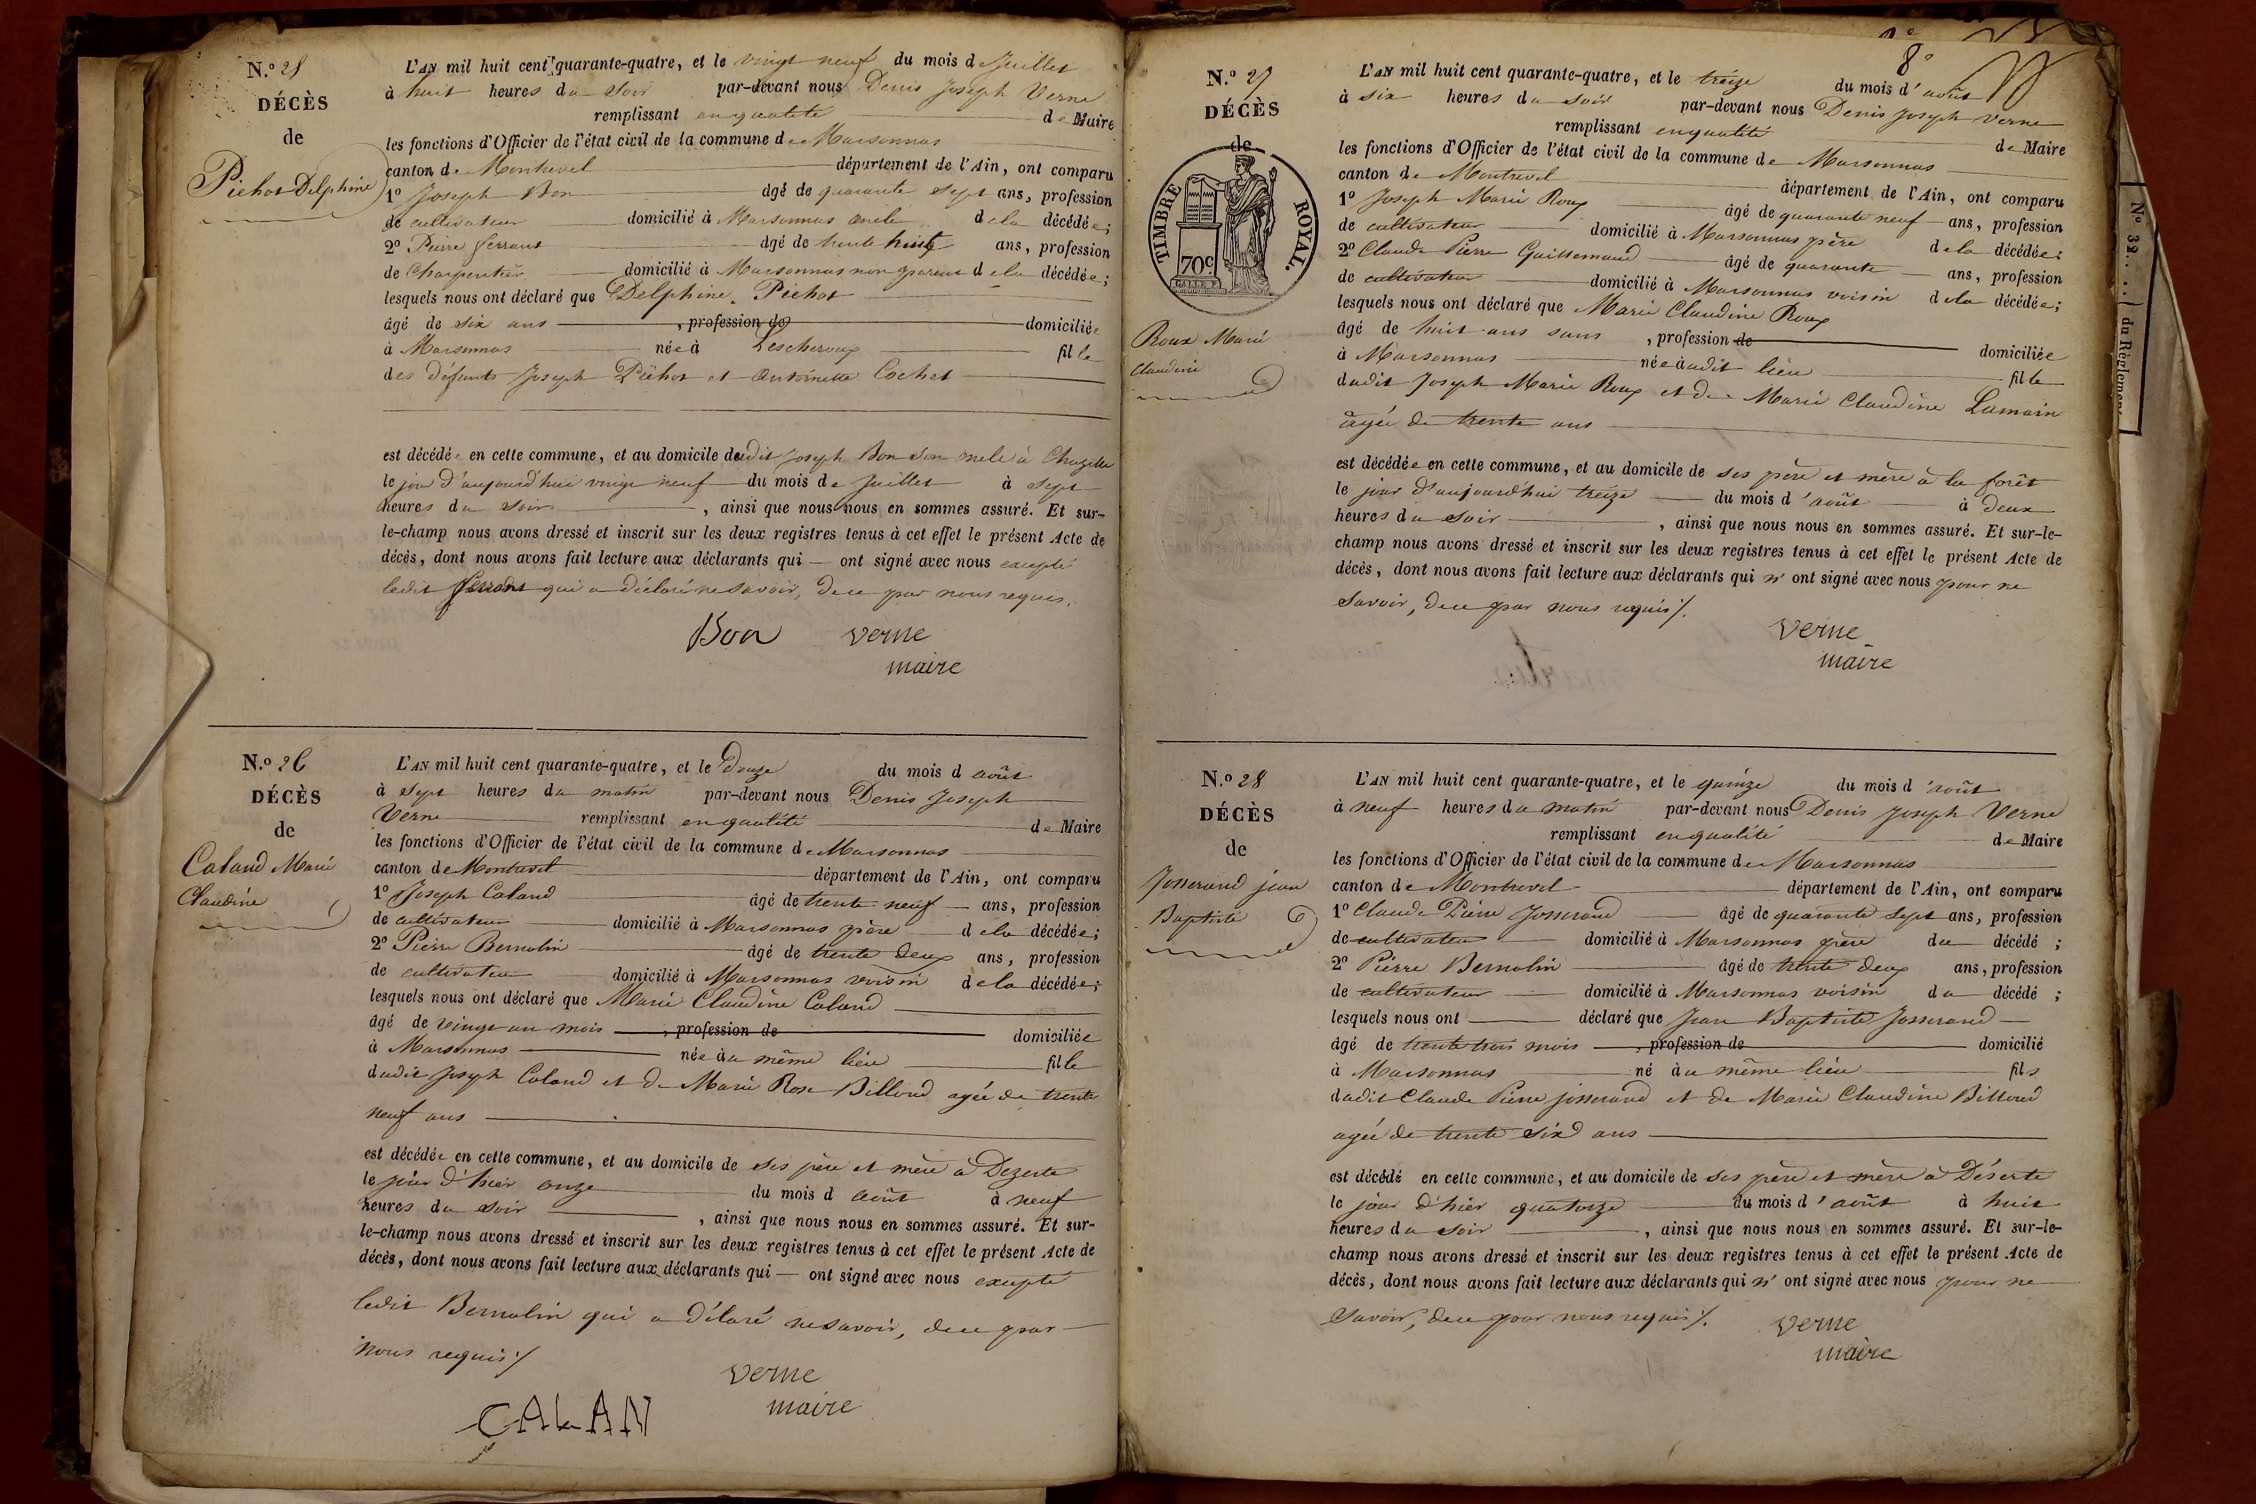 N.º 25
DÉCÈS
de
Pichot Delphine
L'AN mil huit cent quarante-quatre, et le vingt neuf du mois de Juillet
à huit heures du soir par-devant nous Denis Joseph Verne
remplissant en qualité de Maire
les fonctions d'Officier de l'état civil de la commune de Marsonnas
canton de Montrevel département de l'Ain, ont comparu
1º Joseph Bon âgé de quarante sept ans, profession
de cultivateur domicilié à Marsonnas oncle de la décédée;
2º Pierre ferrant âgé de trente huit ans, profession
de Charpentier domicilié à Marsonnas non parent de la décédée;
lesquels nous ont déclaré que Delphine Pichot
âgé de six ans , profession de domiciliée
à Marsonnas née à Lescheroux fille
des défunts Joseph Pichot et Antoinette Cochet
est décédée en cette commune, et au domicile dudit Joseph Bon son oncle à
le jour d'aujourd'hui vingt neuf du mois de Juillet à sept
heures du soir , ainsi que nous nous en sommes assuré. Et sur-
le-champ nous avons dressé et inscrit sur les deux registres tenus à cet effet le présent Acte de
décès, dont nous avons fait lecture aux déclarants qui — ont signé avec nous excepté
ledit ferrant qui a déclaré ne savoir, de ce par nous requis.
Bon verne
maire
N.º 26
DÉCÈS
de
Caland Marie
Claudine
L'AN mil huit cent quarante-quatre, et le Douze du mois d août
à sept heures du matin par-devant nous Denis Joseph
Verne remplissant en qualité de Maire
les fonctions d'Officier de l'état civil de la commune de Marsonnas
canton de Montrevel département de l'Ain, ont comparu
1º Joseph Caland âgé de trente neuf ans, profession
de cultivateur domicilié à Marsonnas père de la décédée;
2º Pierre Bernolin âgé de trente deux ans, profession
de cultivateur domicilié à Marsonnas voisin de la décédée;
lesquels nous ont déclaré que Marie Claudine Caland
âgé de vingt un mois , profession de domiciliée
à Marsonnas née au même lieu fille
dudit Joseph Caland et de Marie Rose Billoud agée de trente
neuf ans
est décédée en cette commune, et au domicile de ses père et mère à Dezerte
le jour d'hier onze du mois d août à neuf
heures du soir , ainsi que nous nous en sommes assuré. Et sur-
le-champ nous avons dressé et inscrit sur les deux registres tenus à cet effet le présent Acte de
décès, dont nous avons fait lecture aux déclarants qui — ont signé avec nous excepté
ledit Bernolin qui a déclaré ne savoir, de ce par
nous requis ./.
verne
maire
CALAN
8º
N.º 27
DÉCÈS
de
TIMBRE ROYAL.
70c
Roux Marie
Claudine
L'AN mil huit cent quarante-quatre, et le treize du mois d'août
à six heures du soir par-devant nous Denis Joseph Verne
remplissant en qualité de Maire
les fonctions d'Officier de l'état civil de la commune de Marsonnas
canton de Montrevel département de l'Ain, ont comparu
1º Joseph Marie Roux âgé de quarante neuf ans, profession
de cultivateur domicilié à Marsonnas père de la décédée;
2º Claude Pierre Guillemaud âgé de quarante ans, profession
de cultivateur domicilié à Marsonnas voisin de la décédée;
lesquels nous ont déclaré que Marie Claudine Roux
âgé de huit ans sans , profession de domiciliée
à Marsonnas née audit lieu fille
dudit Joseph Marie Roux et de Marie Claudine Lamain
agée de trente ans
est décédée en cette commune, et au domicile de ses père et mère à la forêt
le jour d'aujourd'hui treize du mois d'août à deux
heures du soir , ainsi que nous nous en sommes assuré. Et sur-le-
champ nous avons dressé et inscrit sur les deux registres tenus à cet effet le présent Acte de
décès, dont nous avons fait lecture aux déclarants qui n'ont signé avec nous pour ne
savoir, de ce par nous requis ./.
verne
maire
N.º 28
DÉCÈS
de
Josserand jean
Baptiste
L'AN mil huit cent quarante-quatre, et le quinze du mois d'août
à neuf heures du matin par-devant nous Denis Joseph Verne
remplissant en qualité de Maire
les fonctions d'Officier de l'état civil de la commune de Marsonnas
canton de Montrevel département de l'Ain, ont comparu
1º Claude Pierre Josserand âgé de quarante sept ans, profession
de cultivateur domicilié à Marsonnas père du décédé ;
2º Pierre Bernolin âgé de trente deux ans, profession
de cultivateur domicilié à Marsonnas voisin du décédé ;
lesquels nous ont déclaré que Jean Baptiste Josserand
âgé de trente trois mois , profession de domicilié
à Marsonnas né au même lieu fils
dudit Claude Pierre josserand et de Marie Claudine Billoud
agée de trente six ans
est décédé en cette commune, et au domicile de ses père et mère à Déserte
le jour d'hier quatorze du mois d'août à huit
heures du soir , ainsi que nous nous en sommes assuré. Et sur-le-
champ nous avons dressé et inscrit sur les deux registres tenus à cet effet le présent Acte de
décès, dont nous avons fait lecture aux déclarants qui n'ont signé avec nous pour ne
savoir, de ce par nous requis ./.
verne
maire
Nº 32.... du Règlement